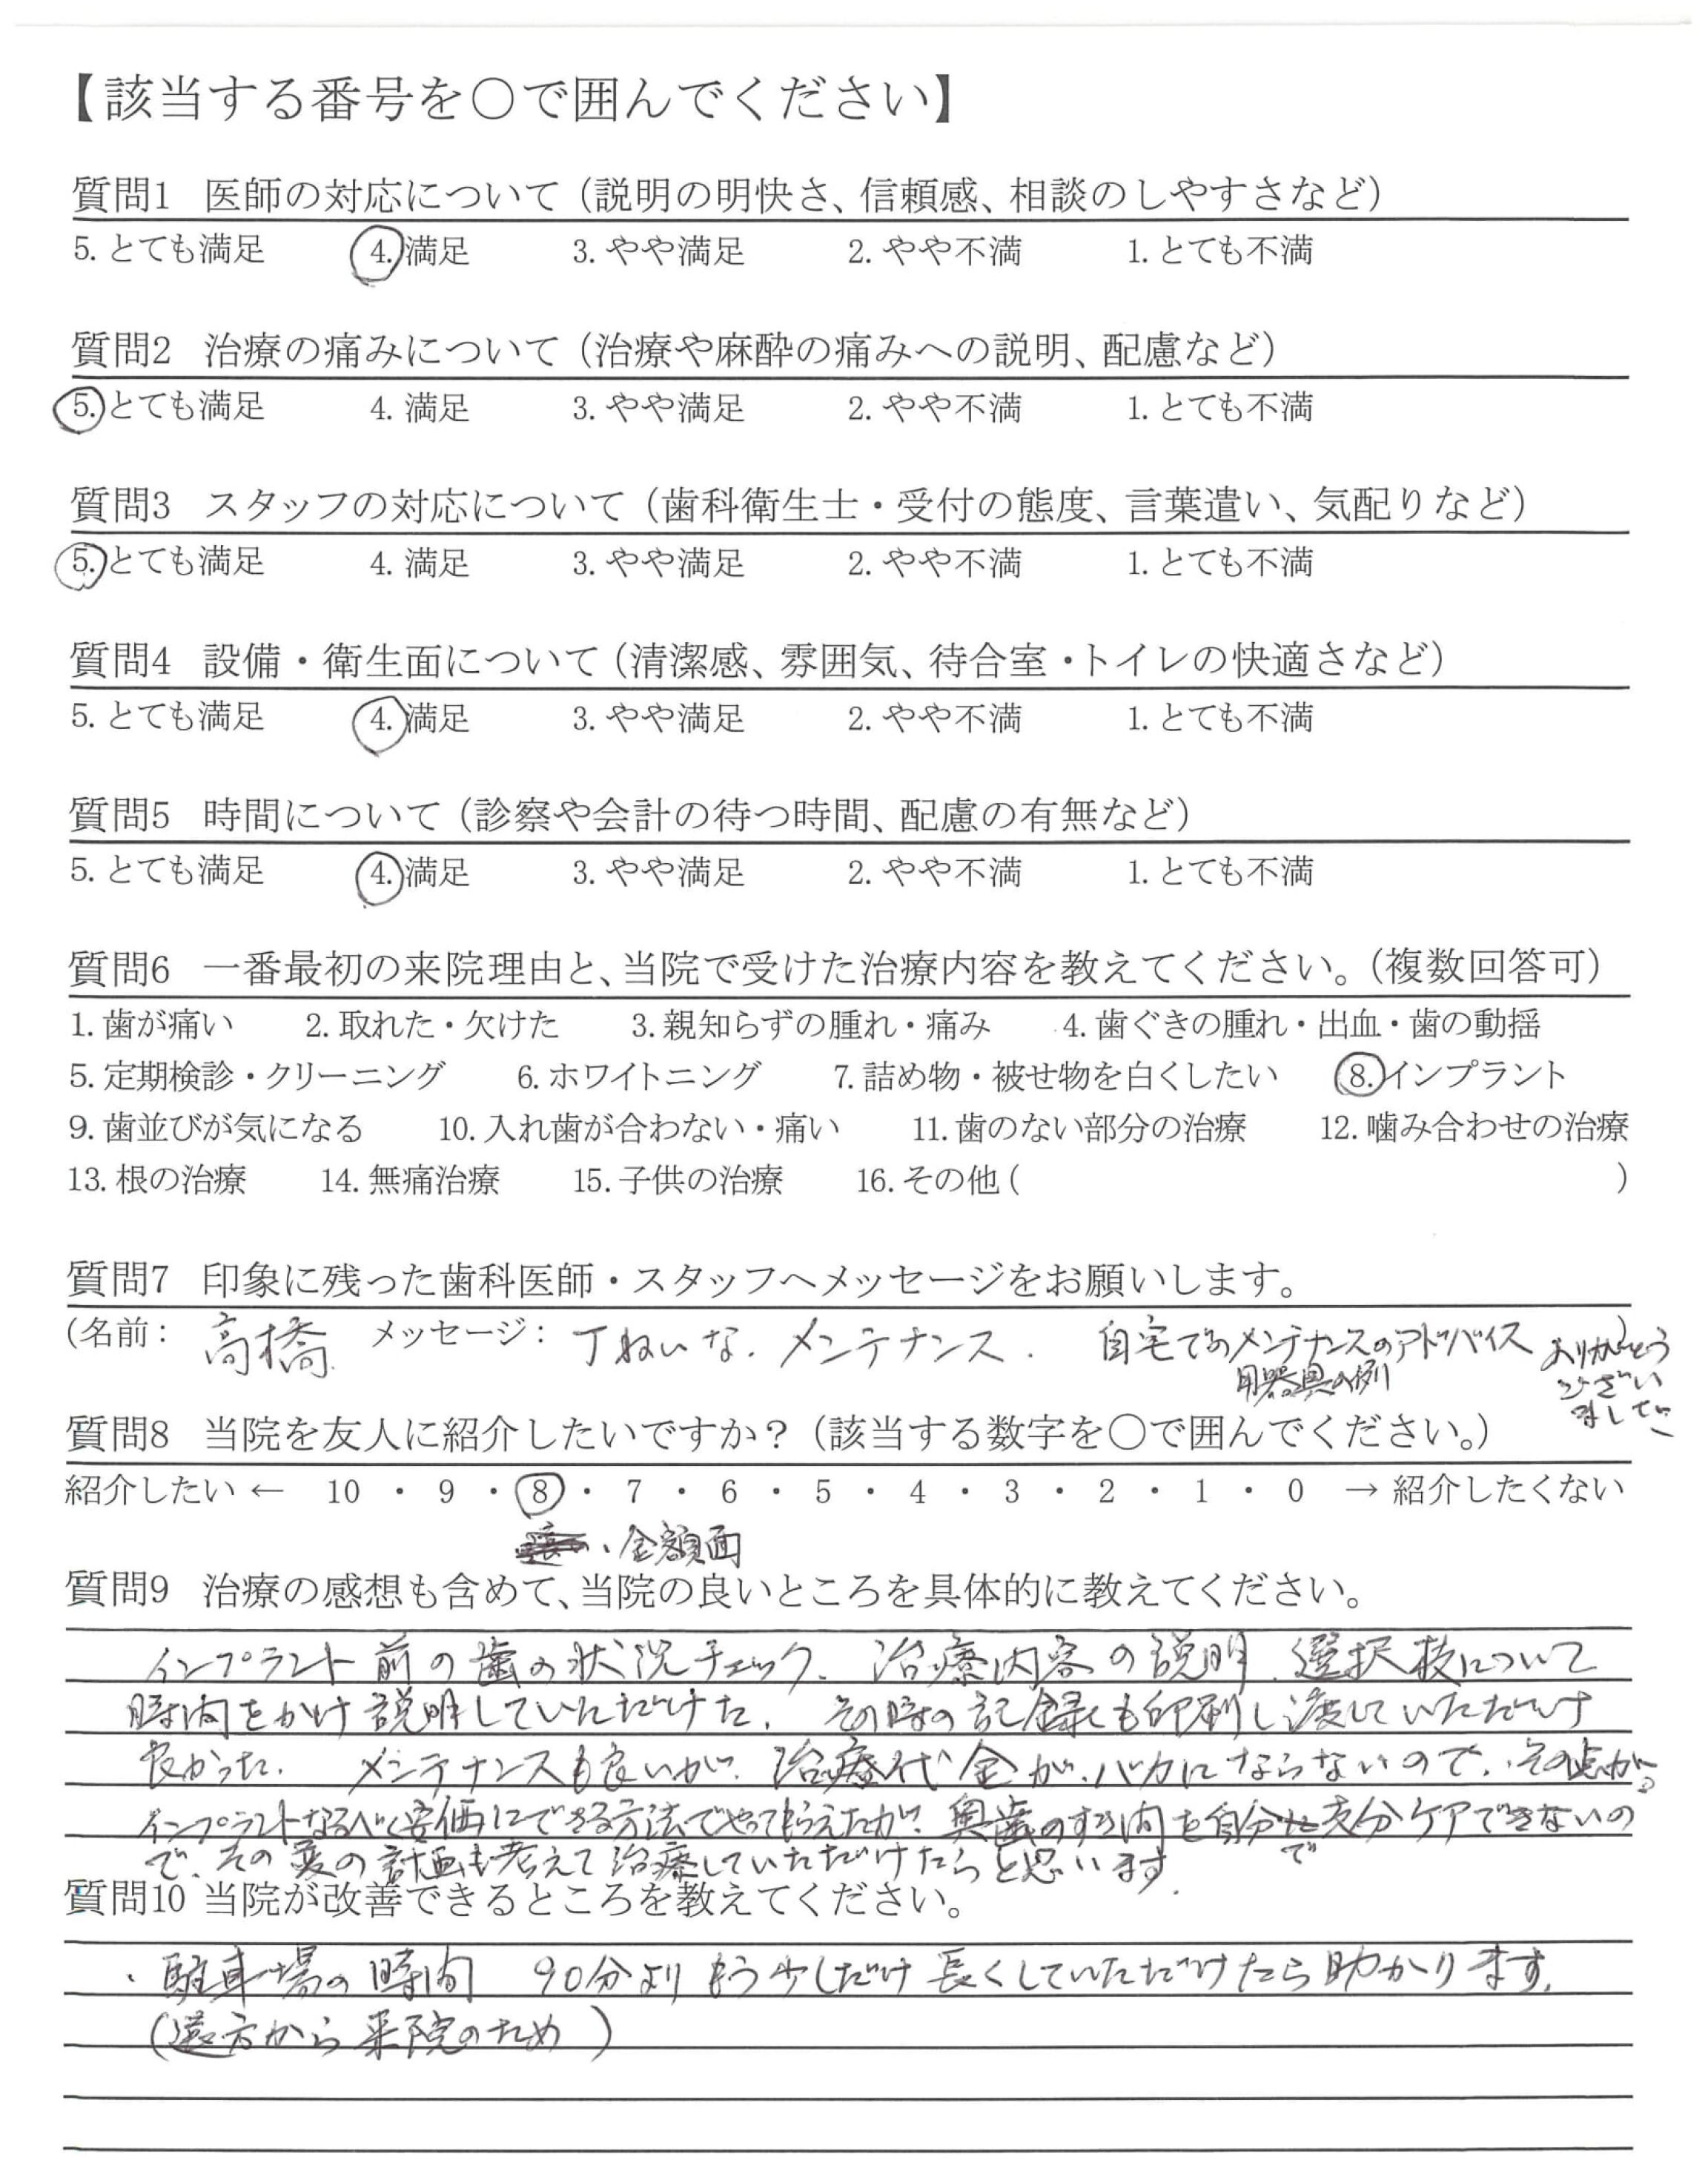 【該当する番号を○で囲んでください】
質問1 医師の対応について（説明の明快さ、信頼感、相談のしやすさなど）
5. とても満足 4. 満足 3. やや満足 2. やや不満 1. とても不満
質問2 治療の痛みについて（治療や麻酔の痛みへの説明、配慮など）
5. とても満足 4. 満足 3. やや満足 2. やや不満 1. とても不満
質問3 スタッフの対応について（歯科衛生士・受付の態度、言葉遣い、気配りなど）
5. とても満足 4. 満足 3. やや満足 2. やや不満 1. とても不満
質問4 設備・衛生面について（清潔感、雰囲気、待合室・トイレの快適さなど）
5. とても満足 4. 満足 3. やや満足 2. やや不満 1. とても不満
質問5 時間について（診察や会計の待つ時間、配慮の有無など）
5. とても満足 4. 満足 3. やや満足 2. やや不満 1. とても不満
質問6 一番最初の来院理由と、当院で受けた治療内容を教えてください。（複数回答可）
1. 歯が痛い 2. 取れた・欠けた 3. 親知らずの腫れ・痛み 4. 歯ぐきの腫れ・出血・歯の動揺
5. 定期検診・クリーニング 6. ホワイトニング 7. 詰め物・被せ物を白くしたい 8. インプラント
9. 歯並びが気になる 10. 入れ歯が合わない・痛い 11. 歯のない部分の治療 12. 噛み合わせの治療
13. 根の治療 14. 無痛治療 15. 子供の治療 16. その他（ ）
質問7 印象に残った歯科医師・スタッフへメッセージをお願いします。
（名前： 高橋 メッセージ： 丁ねいな、メンテナンス、 自宅でのメンテナンスのアドバイス ）
用器具の例
ありがとう
ござい
ました
質問8 当院を友人に紹介したいですか？（該当する数字を○で囲んでください。）
紹介したい ← 10 ・ 9 ・ 8 ・ 7 ・ 6 ・ 5 ・ 4 ・ 3 ・ 2 ・ 1 ・ 0 → 紹介したくない
、金額面
質問9 治療の感想も含めて、当院の良いところを具体的に教えてください。
インプラント前の歯の状況チェック、治療内容の説明、選択枝について
時間をかけ説明していただけた。 その時の記録も印刷し渡していただけ
良かった。 メンテナンスも良いが、治療代金が、バカにならないので、その点が。
インプラントなるべく安価にできる方法でやってもらえたが、奥歯のすき間を自分で充分ケアできないの
で、その変の計画も考えて治療していただけたらと思います。
質問10 当院が改善できるところを教えてください。
・駐車場の時間 90分よりもう少しだけ長くしていただけたら助かります。
（遠方から来院のため）